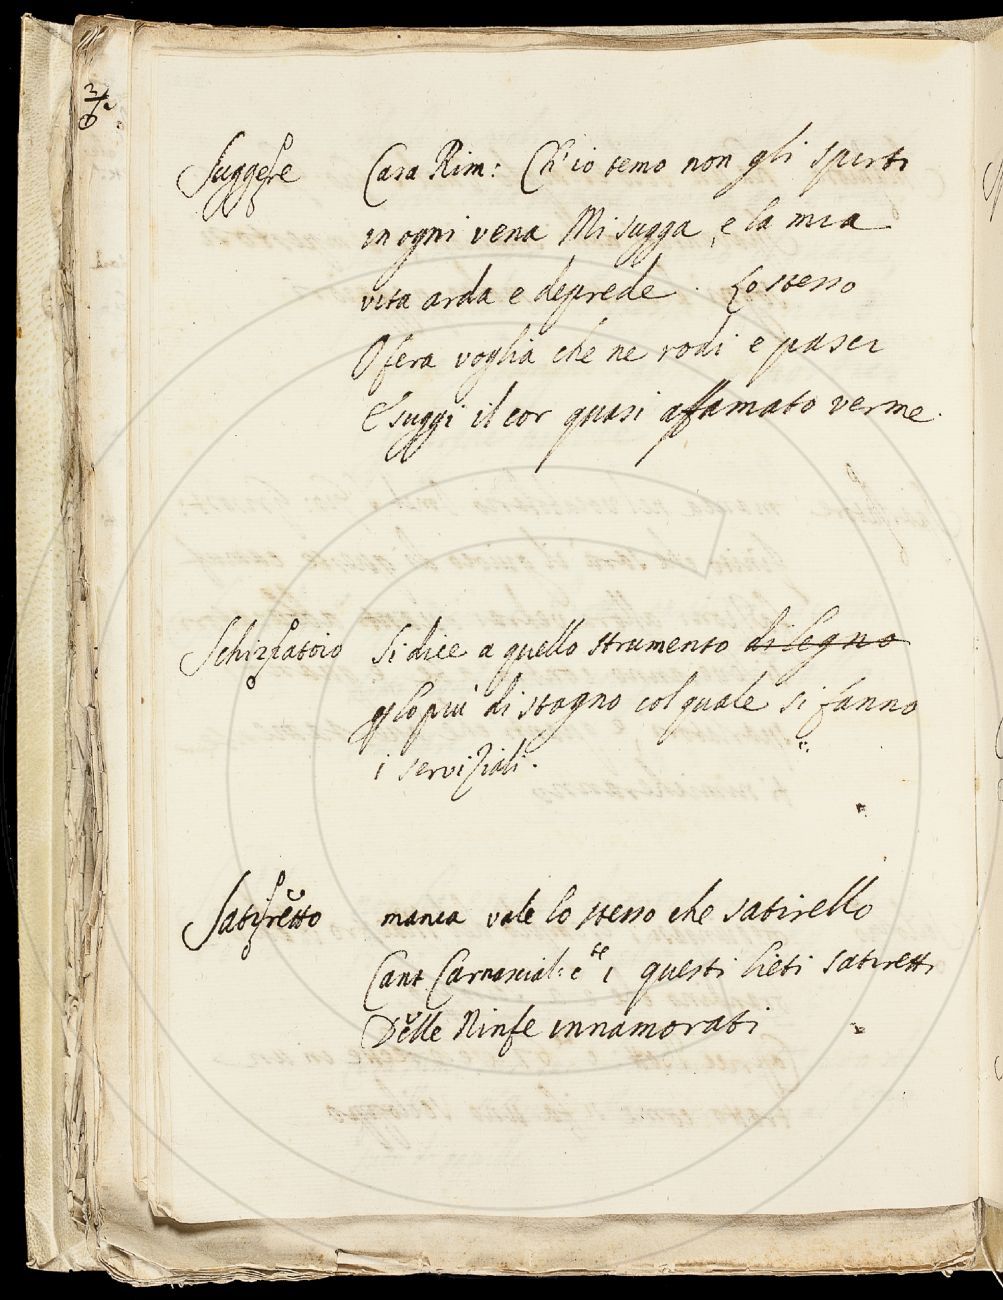 Suggere Casa Rim: Ch'io temo non gli spirti
in ogni vena Mi sugga, e la mia
vita arda e deprede. Lo stesso
O fera voglia che ne rodi e pasci
E suggi il cor quasi affamato verme.
Schizzatoio Si dice a quello strumento di legno
p lo più di stagno col quale si fanno
i serviziali.
Satiretto manca vale lo stesso che satirello
Cant Carnascial: c te 1 questi lieti satiretti
Delle Ninfe innamorati